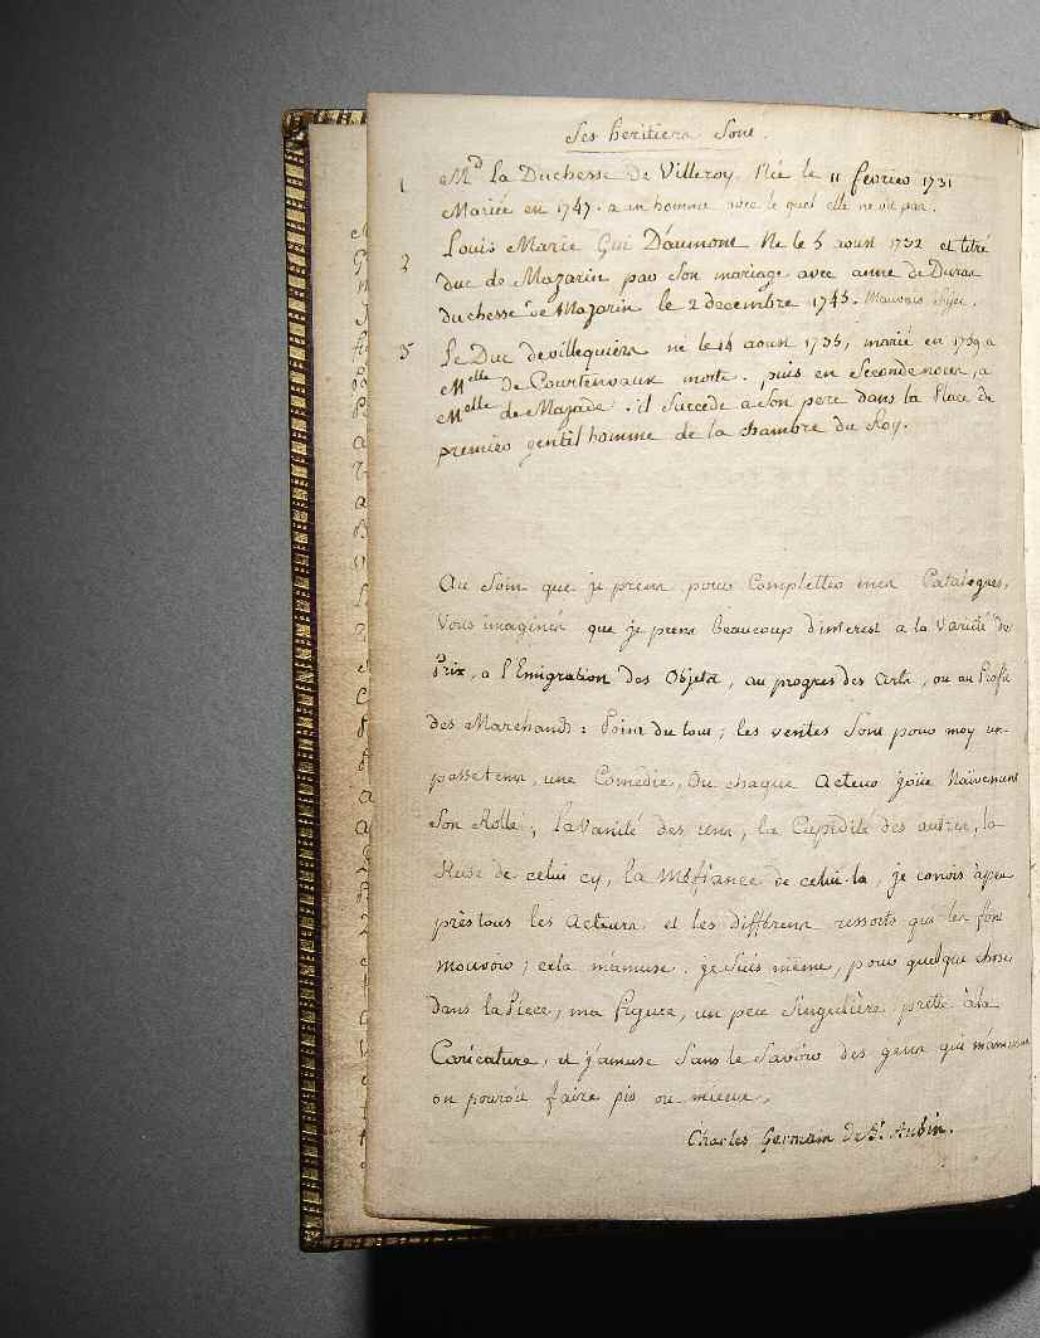 Ses heritiers sont.
1 Md La Duchesse de Villeroy. Née le 11 fevrier 1731
Mariée en 1747. a un homme avec le quel elle ne vit pas.
2 Louis Marie Gui D'aumont Né le 5 aoust 1732 et titré
duc de Mazarin par son mariage avec anne de Duras
duchesse de Mazarin le 2 decembre 1747. Mauvais Sujet.
3 Le Duc devillequiers né le 14 aoust 1736, marié en 1759 a
Melle de Courtenvaux morte. puis en Seconde noces, a
Melle de Mazade. il Succede a Son pere dans la Place de
premier gentil homme de la chambre du Roy.
Au Soin que je prens pour Completter mes Catalogues,
Vous imaginés que je prens beaucoup d'interest a la Varieté des
Prix, a l'Emigration des Objets, au progres des Arts, ou au Profit
des Marchands : Point du tout ; les ventes Sont pour moy un
passetems, une Comédie, Ou chaque Acteur joüe Naïvement
Son Rolle ; la Vanité des uns, la Cupidité des autres, la
Ruse de celui cy, la Méfiance de celui-la, je conois àpeu
près tous les Acteurs et les differens ressorts qui les font
mouvoir ; cela m'amuse. je Suis même, pour quelque chose
dans la Piece, ma figure, un peu Singuliere prette à la
Caricature, et j'amuse Sans le Savoir des gens qui m'amusent
on pouroit faire pis ou mieux.
Charles Germain de St. Aubin.